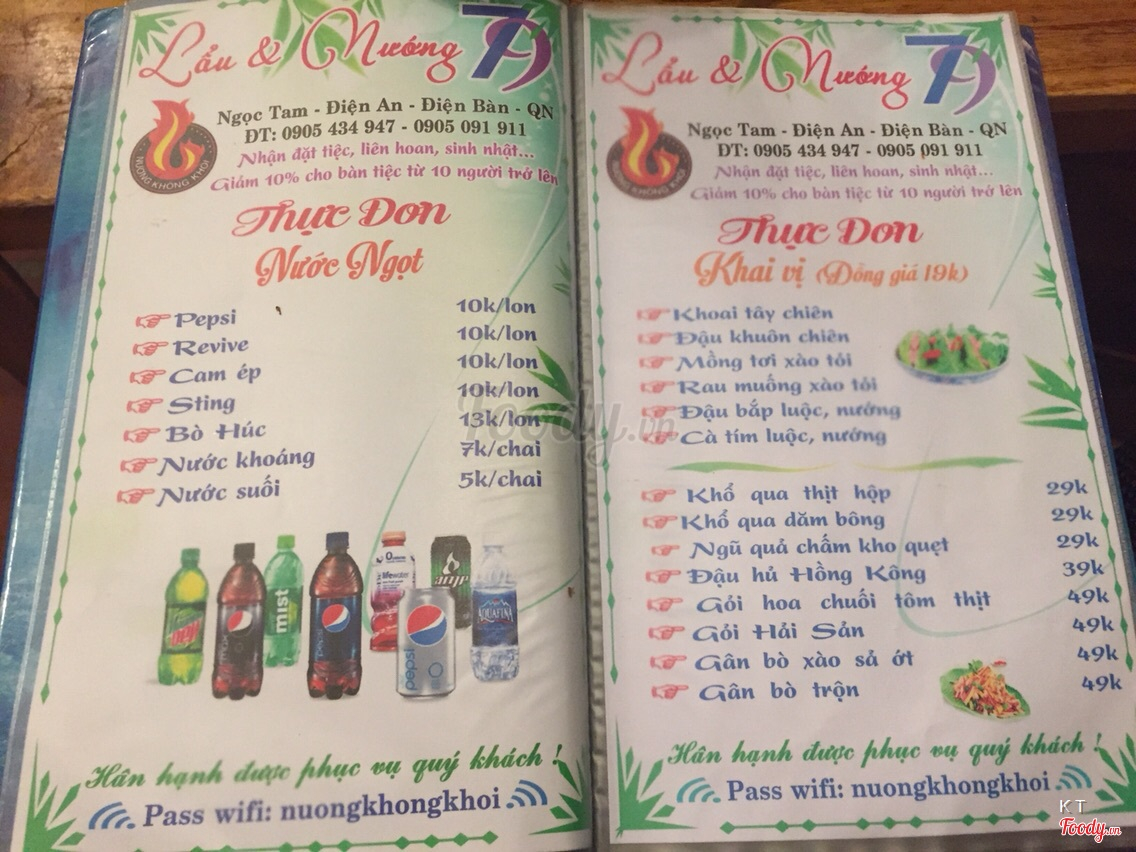 Lẩu & Nướng 79
NƯỚNG KHÔNG KHÓI
Ngọc Tam - Điện An - Điện Bàn - QN
ĐT: 0905 434 947 - 0905 091 911
Nhận đặt tiệc, liên hoan, sinh nhật...
Giảm 10% cho bàn tiệc từ 10 người trở lên
Thực Đơn
Nước Ngọt
Pepsi 10k/lon
Revive 10k/lon
Cam ép 10k/lon
Sting 10k/lon
Bò Húc 13k/lon
Nước khoáng 7k/chai
Nước suối 5k/chai
mist
pepsi
lifewater
amp
pepsi
AQUAFINA
Hân hạnh được phục vụ quý khách !
Pass wifi: nuongkhongkhoi
Lẩu & Nướng 79
NƯỚNG KHÔNG KHÓI
Ngọc Tam - Điện An - Điện Bàn - QN
ĐT: 0905 434 947 - 0905 091 911
Nhận đặt tiệc, liên hoan, sinh nhật...
Giảm 10% cho bàn tiệc từ 10 người trở lên
Thực Đơn
Khai vị (Đồng giá 19k)
Khoai tây chiên
Đậu khuôn chiên
Mồng tơi xào tỏi
Rau muống xào tỏi
Đậu bắp luộc, nướng
Cà tím luộc, nướng
Khổ qua thịt hộp 29k
Khổ qua dăm bông 29k
Ngũ quả chấm kho quẹt 29k
Đậu hủ Hồng Kông 39k
Gỏi hoa chuối tôm thịt 49k
Gỏi Hải Sản 49k
Gân bò xào sả ớt 49k
Gân bò trộn 49k
Hân hạnh được phục vụ quý khách !
Pass wifi: nuongkhongkhoi
Foody.vn
KT
Foody.vn